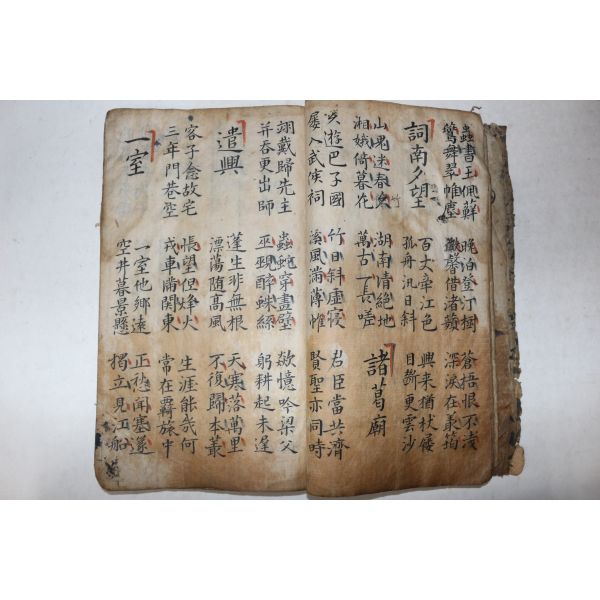 蟲書玉佩蘚 晚泊登汀樹 蒼梧恨不淺
鷰舞翠帷塵 微馨借渚蘋 深淚在叢筠
詞南夕望
百丈牽江色 興來猶杖屨
孤舟汎日斜 目斷更雲沙
山鬼迷春竹 湖南清絶地
湘娥倚暮花 萬古一長嗟
諸葛廟
久遊巴子國 竹日斜虛寢 君臣當共濟
屢入武侯祠 溪風滿薄帷 賢聖亦同時
翊戴歸先主 蟲蛇穿畫壁 欻憶吟梁父
并吞更出師 巫覡醉蛛絲 躬耕起未遲
遣興
蓬生非無根 天寒落萬里
漂蕩随高風 不復歸本叢
客子念故宅 悵望但烽火 生涯能幾何
三年門巷空 戎車滿關東 常在羈旅中
一室
一室他鄉遠 正愁聞塞邃
空井暮景懸 獨立見江船